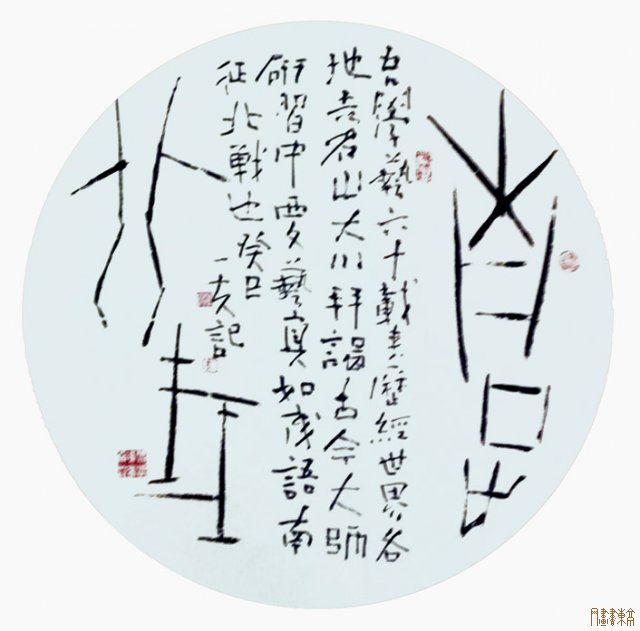 南征北
吾學藝六十載來歷經世界各
地名山大川拜謁古今大師
研習中西文藝真如成語南
征北戰也癸巳
一夫記